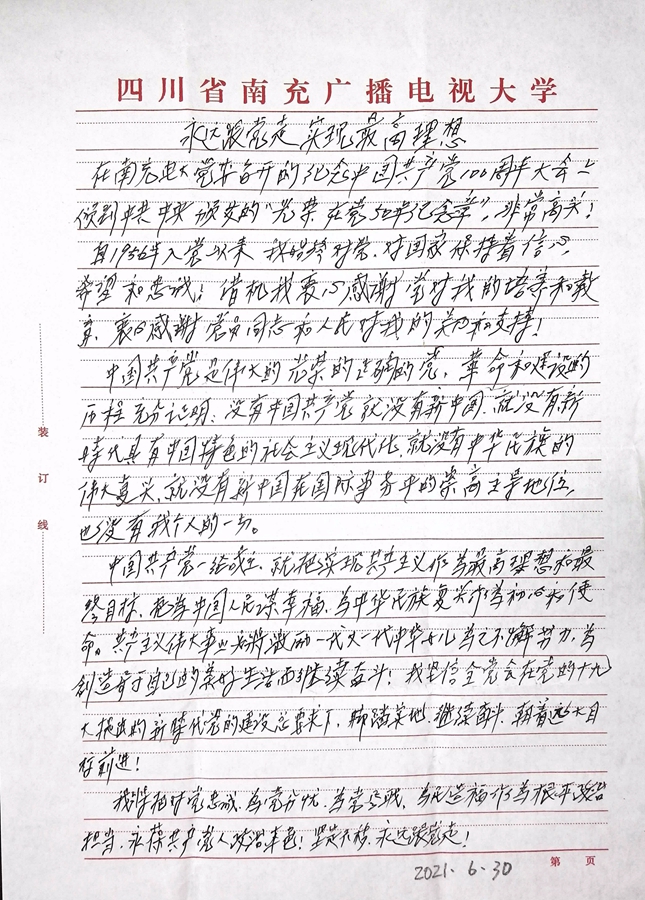 四川省南充广播电视大学
永远跟党走 实现最高理想
在南充电大党委召开的纪念中国共产党100周年大会上
领到中共中央颁发的“光荣在党50年纪念章”,非常高兴!
自1956年入党以来 我始终对党、对国家保持着信心,
希望和忠诚!借机我衷心感谢党对我的培养和教
育、衷心感谢党员同志和人民对我的关心和支持!
中国共产党是伟大的光荣的正确的党,革命和建设的
历程充分证明,没有中国共产党就没有新中国,就没有新
时代具有中国特色的社会主义现代化,就没有中华民族的
伟大复兴,就没有新中国在国际事务中的崇高主导地位,
也没有我个人的一切。
中国共产党一经成立,就把实现共产主义作为最高理想和最
终目标,把为中国人民谋幸福,为中华民族复兴作为初心和使
命。共产主义伟大事业必将激励一代又一代中华儿女为之不懈努力,为
创造属于自己的美好生活而继续奋斗!我坚信全党会在党的十九
大提出的新时代党的建设总要求下,脚踏实地,继续奋斗,朝着远大目
标前进!
我将把对党忠诚,为党分忧,为党尽职,为民造福作为根本政治
担当,永葆共产党人政治本色!坚定不移,永远跟党走!
2021.6.30
第 页
装
订
线